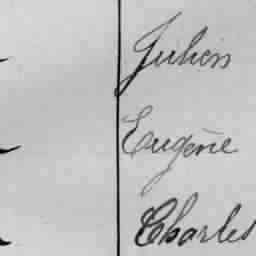 Julien
Eugène
Charles